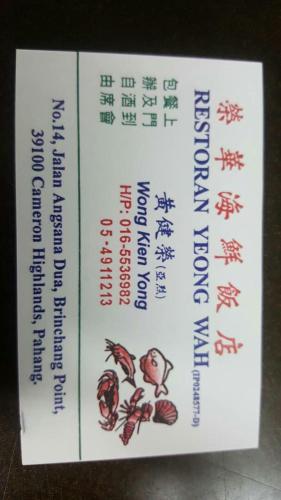 榮華海鮮飯店
RESTORAN YEONG WAH (IP0248577-D)
上門到會
餐及酒席
包辦自由
黃健榮(亞烈)
Wong Kien Yong
H/P: 016-5536982
05-4911213
No.14, Jalan Angsana Dua, Brinchang Point,
39100 Cameron Highlands, Pahang.